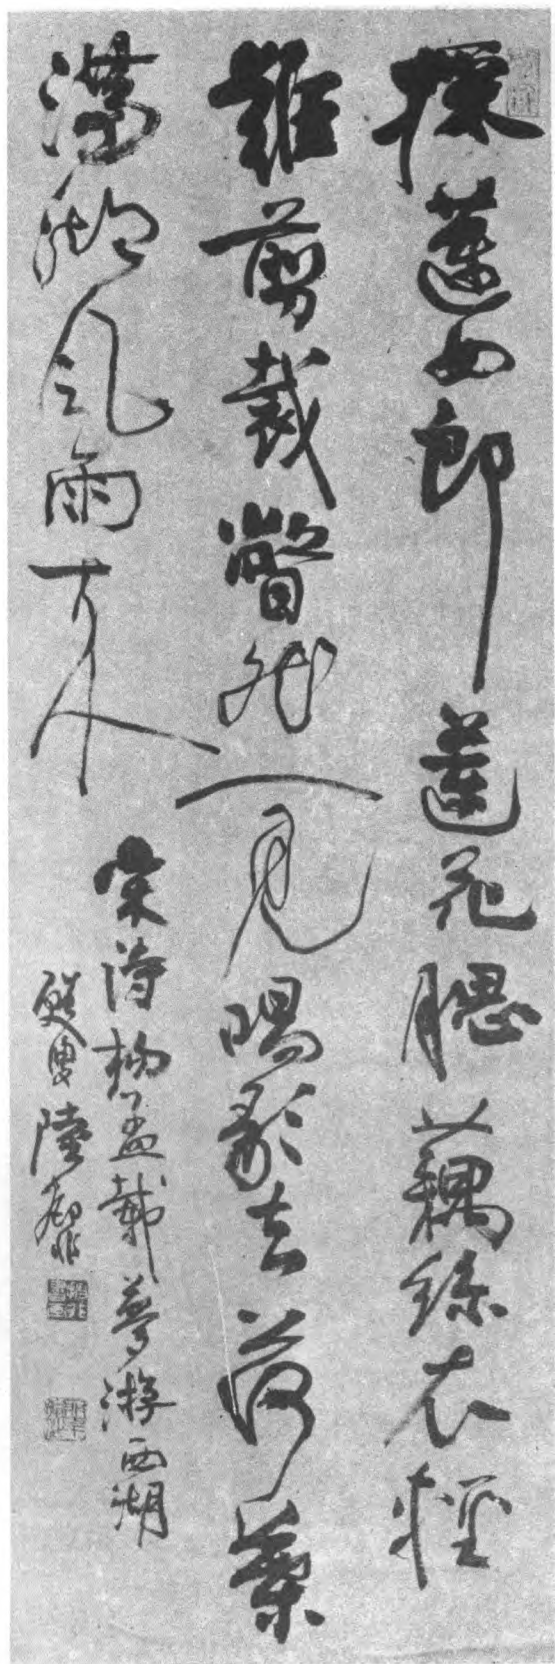 採蓮女郎蓮花腮藕絲衣輕
難剪裁瞥然一見唱歌去荷葉
滿湖風雨來
宋詩楊孟載夢游西湖
甦叟陸抑非